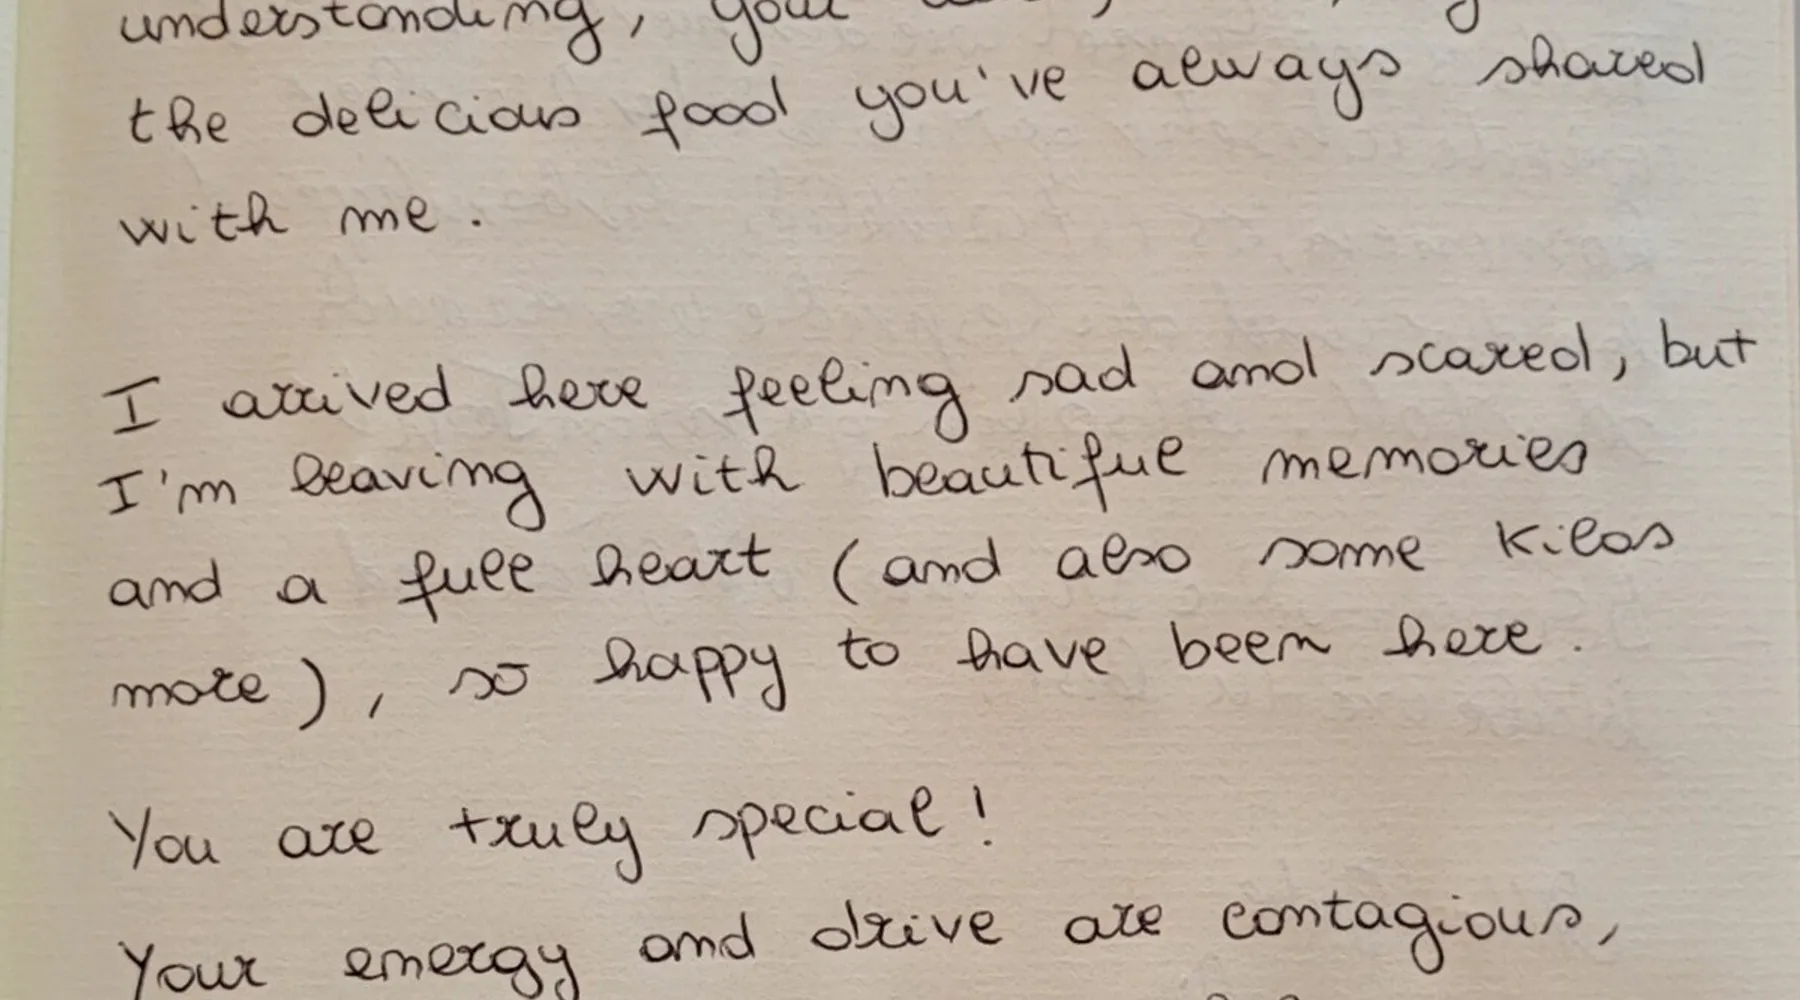 understanding, your
the delicious food you've always shared
with me.
I arrived here feeling sad and scared, but
I'm leaving with beautiful memories
and a full heart (and also some kilos
more), so happy to have been here.
You are truly special!
Your energy and drive are contagious,